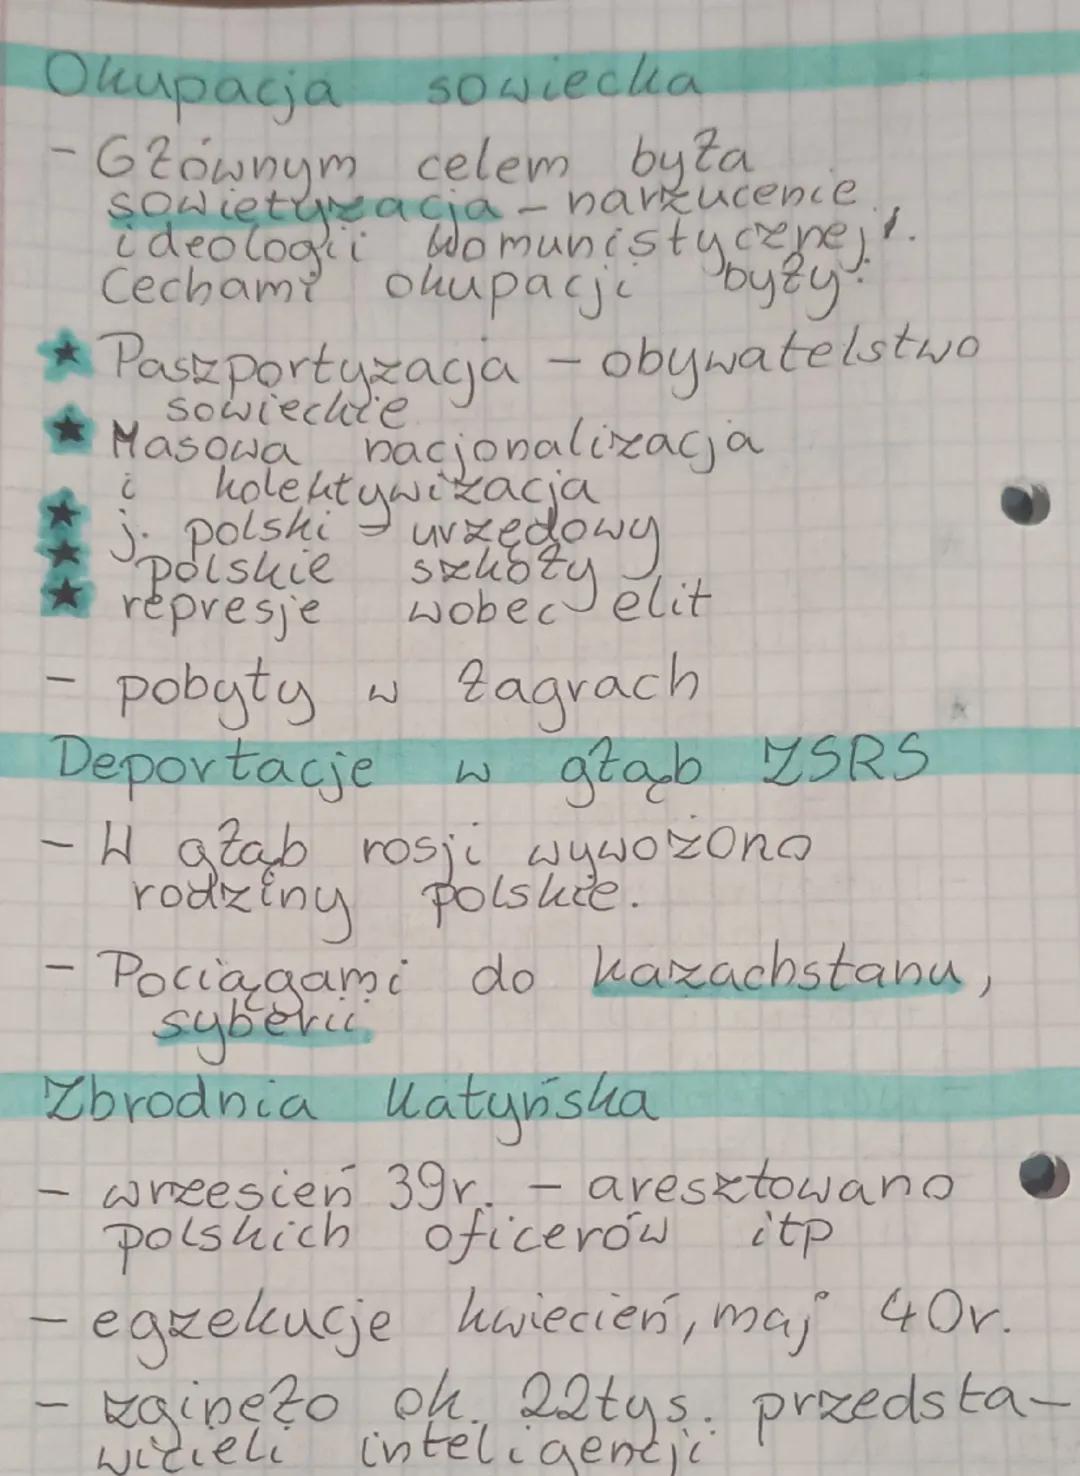 Okupacja sowiecka
- Głównym celem była
sowietyzacja - narzucenie
ideologii komunistycznej.
Cechami okupacji były:
★ Paszportyzacja - obywatelstwo
sowieckie
★ Masowa nacjonalizacja
i kolektywizacja
★ j. polski - urzędowy
★ polskie szkoły
★ represje wobec elit
- pobyty w łagrach
Deportacje w głąb ZSRS
- W głąb rosji wywożono
rodziny polskie.
- Pociągami do kazachstanu,
syberii
Zbrodnia Katyńska
- wrzesień 39r. - aresztowano
polskich oficerów itp
- egzekucje kwiecień, maj 40r.
- zgineło ok. 22tys. przedsta-
wicieli inteligencji